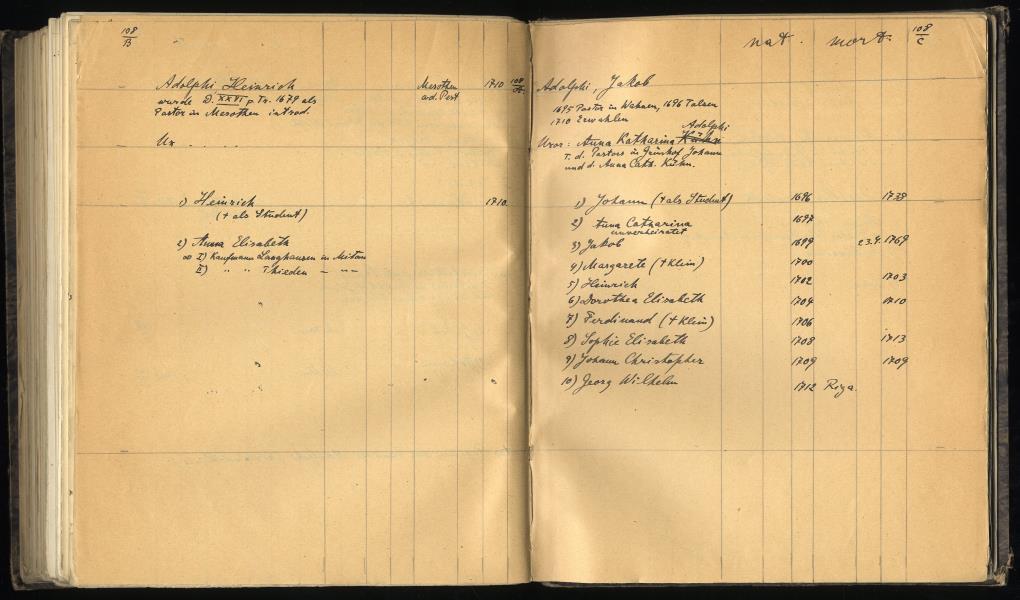 108
B
Adolphi Heinrich Mesothen 1710 108
wurde D. XXVI p. Tr. 1679 als a.d. Pest A
Pastor in Mesothen introd.
Ux . . . . .
1) Heinrich 1710
(† als Student)
2) Anna Elisabeth
∞ I) Kaufmann Langhansen in Mitau
II) " " Thieden — " —
nat. mort. 108
C
Adolphi, Jakob
1695 Pastor in Wahnen, 1696 Talsen
1710 Erwahlen
Adolphi
Uxor: Anna Katharina Kühn
T. d. Pastors in Grünhof Johann
und d. Anna Cath. Kühn.
1) Johann († als Student) 1696 1738
2) Anna Catharina 1697
unverheiratet
3) Jakob 1699 23.9.1769
4) Margarete († klein) 1700
5) Heinrich 1702 1703
6) Dorothea Elisabeth 1704 1710
7) Ferdinand († klein) 1706
8) Sophie Elisabeth 1708 1713
9) Johann Christopher 1709 1709
10) Georg Wilhelm 1712 Riga.